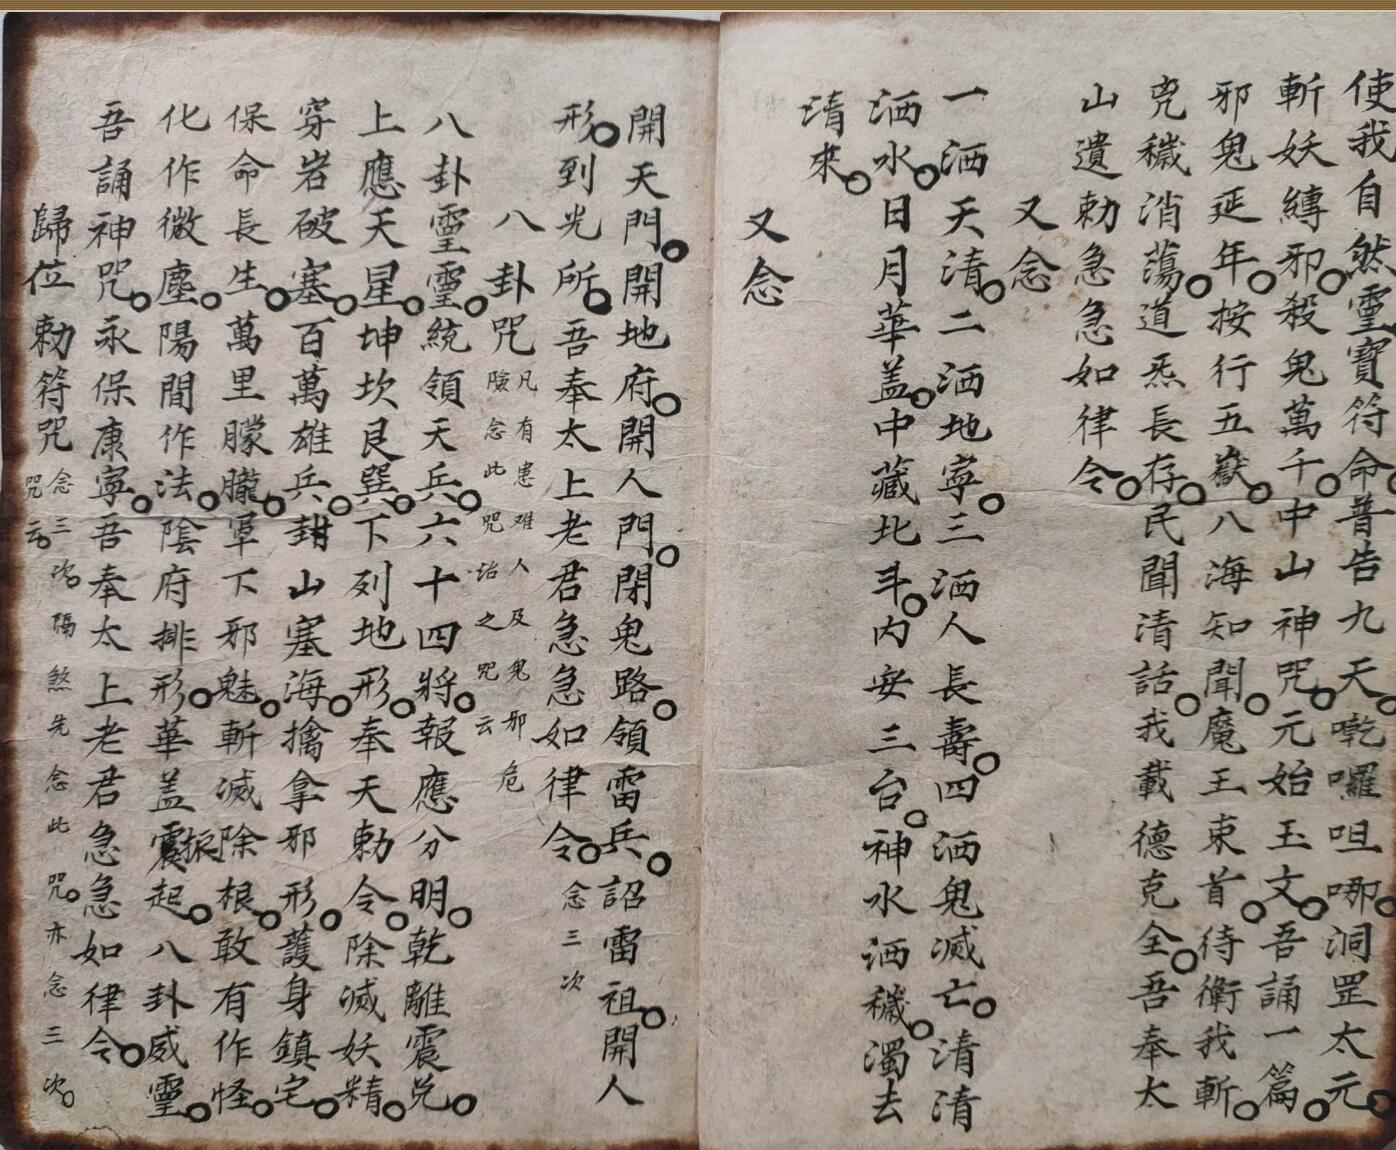 使我自然靈寶符命。普告九天。乾囉呾哪。洞罡太元。
斬妖縛邪。殺鬼萬千。中山神咒。元始玉文。吾誦一篇。
邪鬼延年。按行五嶽。八海知聞。魔王束首。侍衛我斬。
兇穢消蕩。道炁長存。民聞清話。我載德克全。吾奉太
山遺勅急急如律令。
又念
一洒天清。二洒地寧。三洒人長壽。四洒鬼滅亡。清清
洒水。日月華盖。中藏北斗。內安三台。神水洒穢。濁去
清來。
又念
開天門。開地府。開人門。閉鬼路。領雷兵。詔雷祖。開人
形。到光所。吾奉太上老君急急如律令。念三次
八卦咒 凡有患难人及鬼邪危
險念此咒治之咒云
八卦靈靈。統領天兵。六十四將。報應分明。乾離震兌。
上應天星。坤坎艮巽。下列地形。奉天勅令。除滅妖精。
穿岩破塞。百萬雄兵。封山塞海。擒拿邪形。護身鎮宅。
保命長生。萬里朦朧。軍下邪魅。斬滅除根。敢有作怪。
化作微塵。陽間作法。陰府排形。華盖震振起。八卦威靈。
吾誦神咒。永保康寧。吾奉太上老君急急如律令。
歸位勅符咒 念三次。隔煞先念此咒。亦念三次。
咒云。